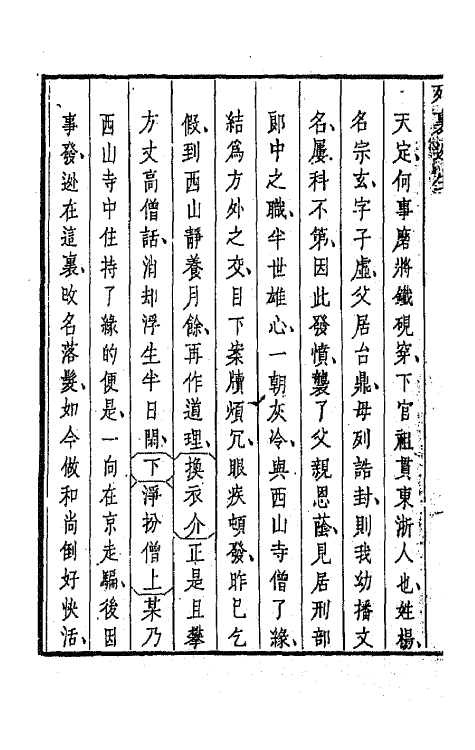 天定、何事磨將鐵硯穿、下官祖貫東浙人也、姓楊、
名宗玄、字子虛、父居台鼎、母列誥封、則我幼播文
名、屢科不第、因此發憤、襲了父親恩蔭、見居刑部
郎中之職、半世雄心、一朝灰冷、與西山寺僧了緣、
結爲方外之交、目下案牘煩冗、眼疾頓發、昨已乞
假、到西山靜養月餘、再作道理、換衣介正是且攀
方丈高僧話、消却浮生半日閒、下淨扮僧上某乃
西山寺中住持了緣的便是、一向在京走騙、後因
事發、逊在這裏、改名落髮、如今做和尚倒好快活、